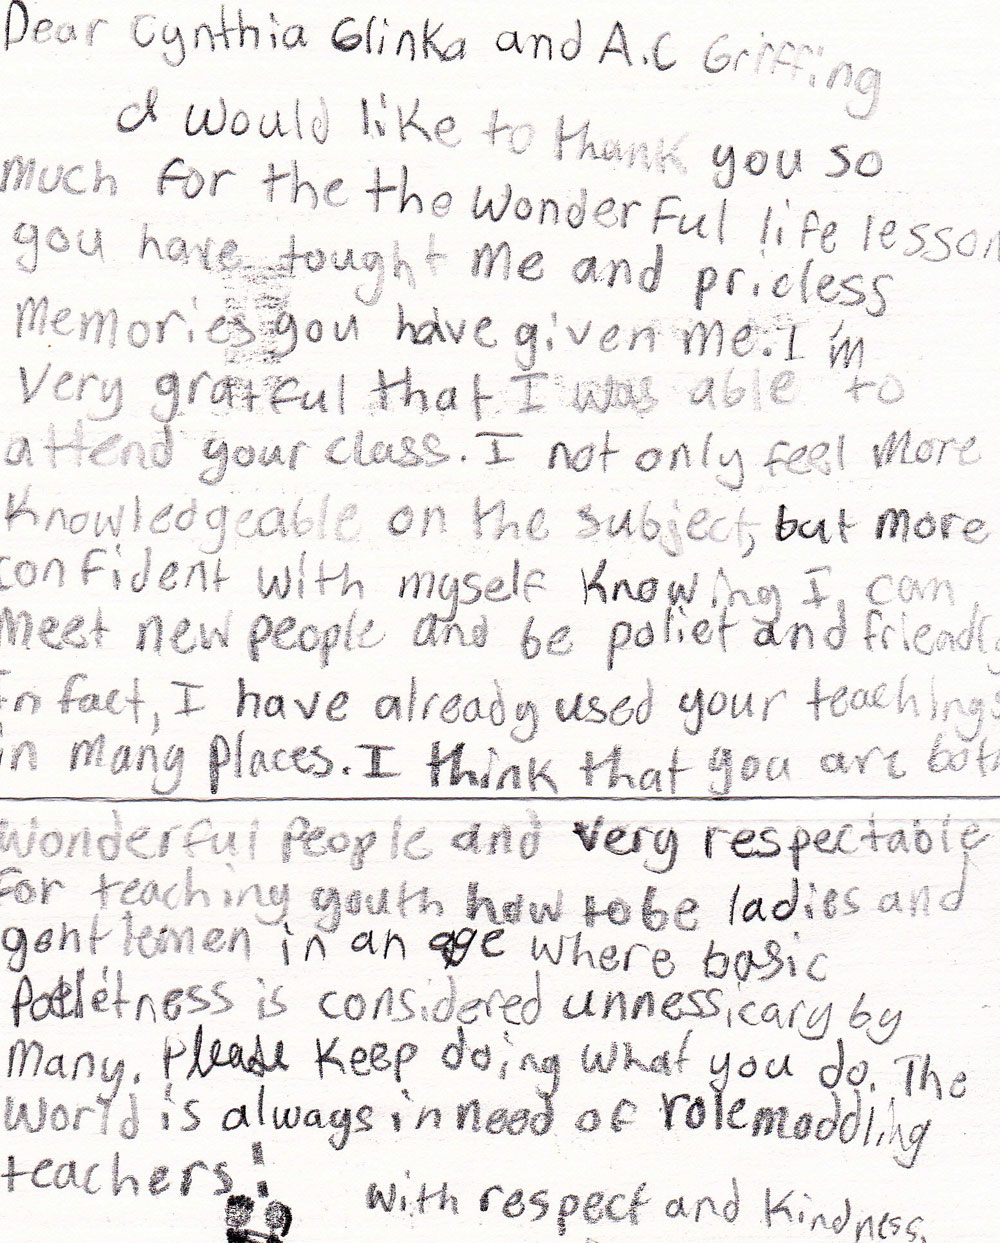 Dear Cynthia Glinka and A.C Griffing
I would like to thank you so
much for the the wonderful life lesson
you have tought me and pricless
memories you have given me. I'm
very gratful that I was able to
attend your class. I not only feel more
knowledgeable on the subject, but more
confident with myself knowing I can
meet new people and be poliet and friendly
In fact, I have already used your teachings
in many places. I think that you are both
wonderful people and very respectable
for teaching youth how to be ladies and
gentlemen in an age where basic
polietness is considered unnessicary by
many. Please keep doing what you do. The
world is always in need of role moddling
teachers!
with respect and kindness,